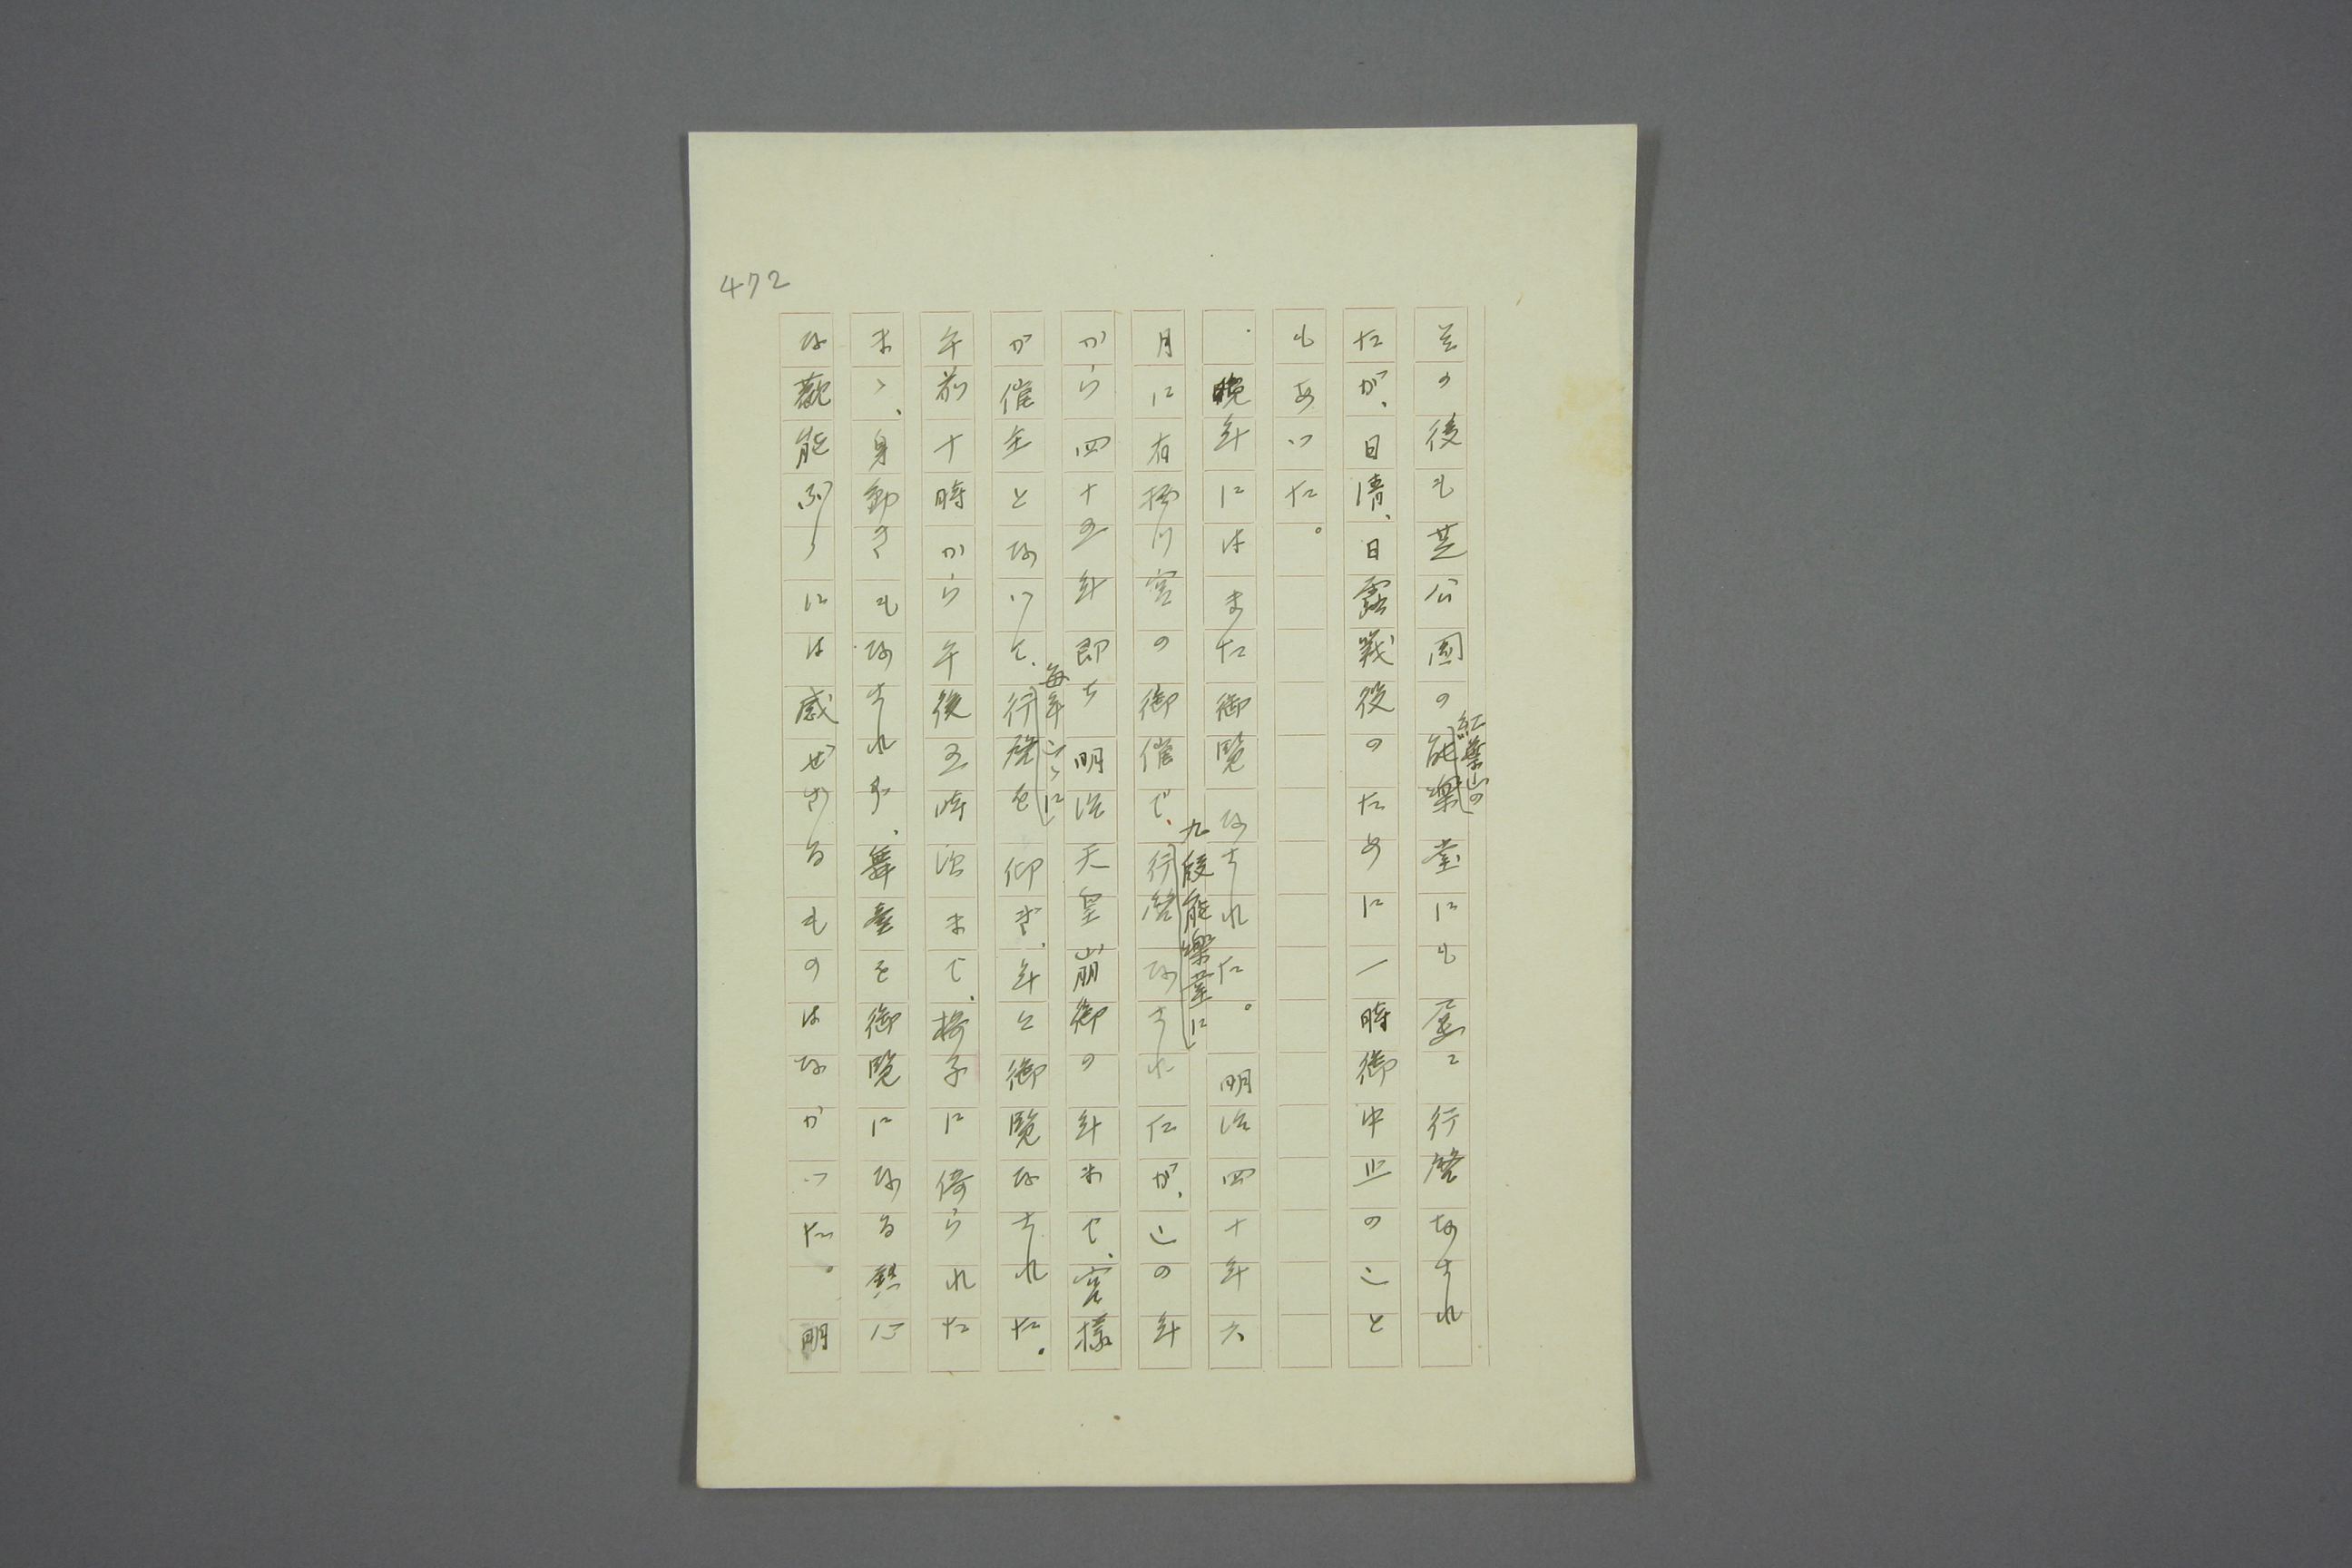 472
其の後も芝公園の紅葉山の能楽堂にも屡〻行啓なされ
たが、日清、日露戦役のために一時御中止のこと
もあつた。
晩年にはまた御覧なされた。明治四十年六
月に有栖川宮の御催で、九段能楽堂に行啓なされたが、この年
から四十五年即ち明治天皇崩御の年まで、宮様
が催主となつて、毎年こゝに行啓を仰ぎ、年々御覧なされた。
午前十時から午後五時頃まで、椅子に倚られた
まゝ、身動きもなされず、舞臺を御覧になる熱心
な觀能ぶりには感ぜざるものはなかつた。明